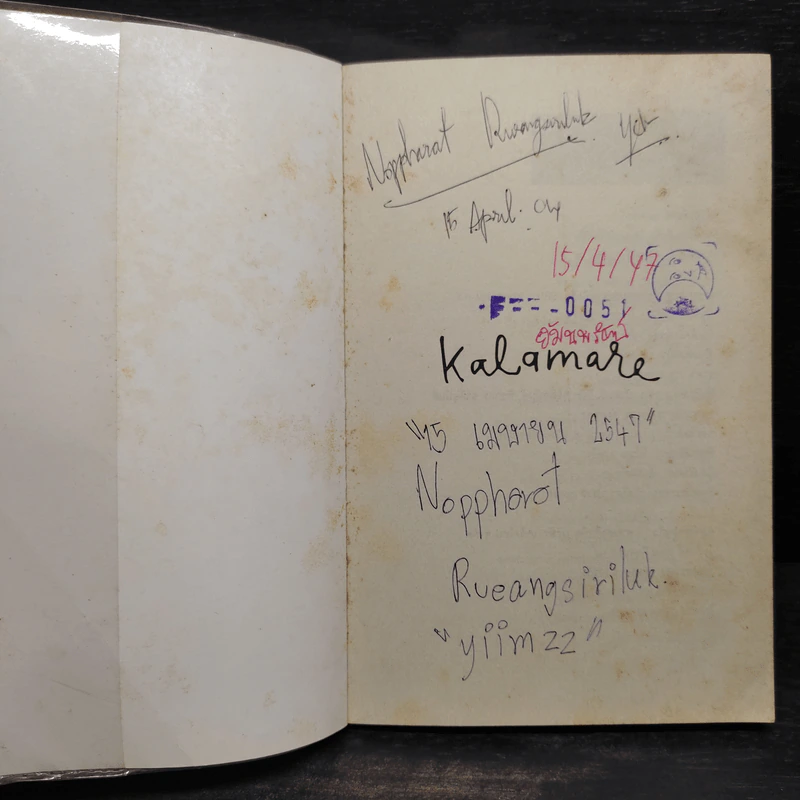 Noppharat Rueangsiriluk
15 April. 04
15/4/47
-0051
Kalamare
"15 เมษายน 2547"
Noppharat
Rueangsiriluk.
"yiimzz"